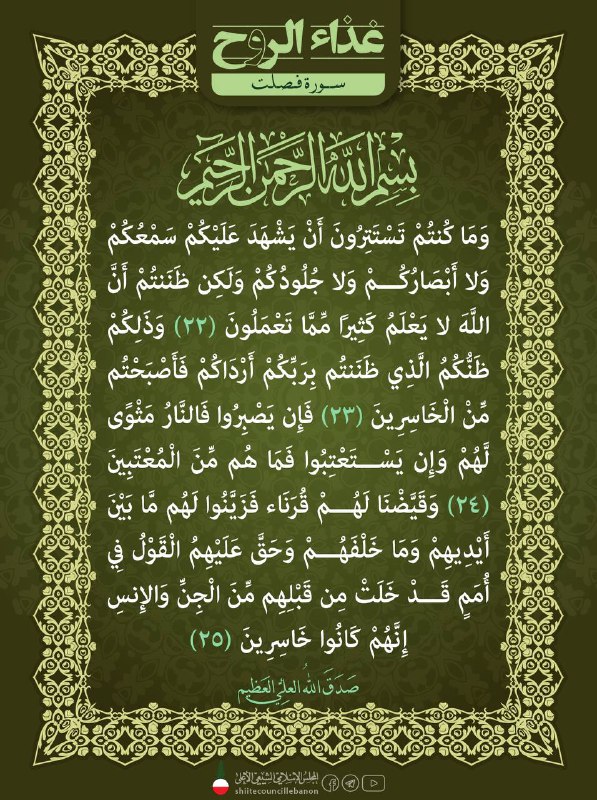 غذاء الروح
سورة فصلت
بِسْمِ اللَّهِ الرَّحْمَنِ الرَّحِيمِ
وَمَا كُنتُمْ تَسْتَتِرُونَ أَنْ يَشْهَدَ عَلَيْكُمْ سَمْعُكُمْ
وَلا أَبْصَارُكُـــمْ وَلا جُلُودُكُمْ وَلَكِن ظَنَنتُمْ أَنَّ
اللَّهَ لا يَعْلَمُ كَثِيرًا مِّمَّا تَعْمَلُونَ (٢٢) وَذَلِكُمْ
ظَنُّكُمُ الَّذِي ظَنَنتُم بِرَبِّكُمْ أَرْدَاكُمْ فَأَصْبَحْتُم
مِّنْ الْخَاسِرِينَ (٢٣) فَإِن يَصْبِرُوا فَالنَّارُ مَثْوًى
لَّهُمْ وَإِن يَسْـــتَعْتِبُوا فَمَا هُم مِّنَ الْمُعْتَبِينَ
(٢٤) وَقَيَّضْنَا لَهُـــمْ قُرَنَاء فَزَيَّنُوا لَهُم مَّا بَيْنَ
أَيْدِيهِمْ وَمَا خَلْفَهُـــمْ وَحَقَّ عَلَيْهِمُ الْقَوْلُ فِي
أُمَمٍ قَـــدْ خَلَتْ مِن قَبْلِهِم مِّنَ الْجِنِّ وَالإِنسِ
إِنَّهُمْ كَانُوا خَاسِرِينَ (٢٥)
صَدَقَ اللهُ العليُّ العَظيم
المجلس الإسلامي الشيعي الأعلى
shiitecouncillebanon